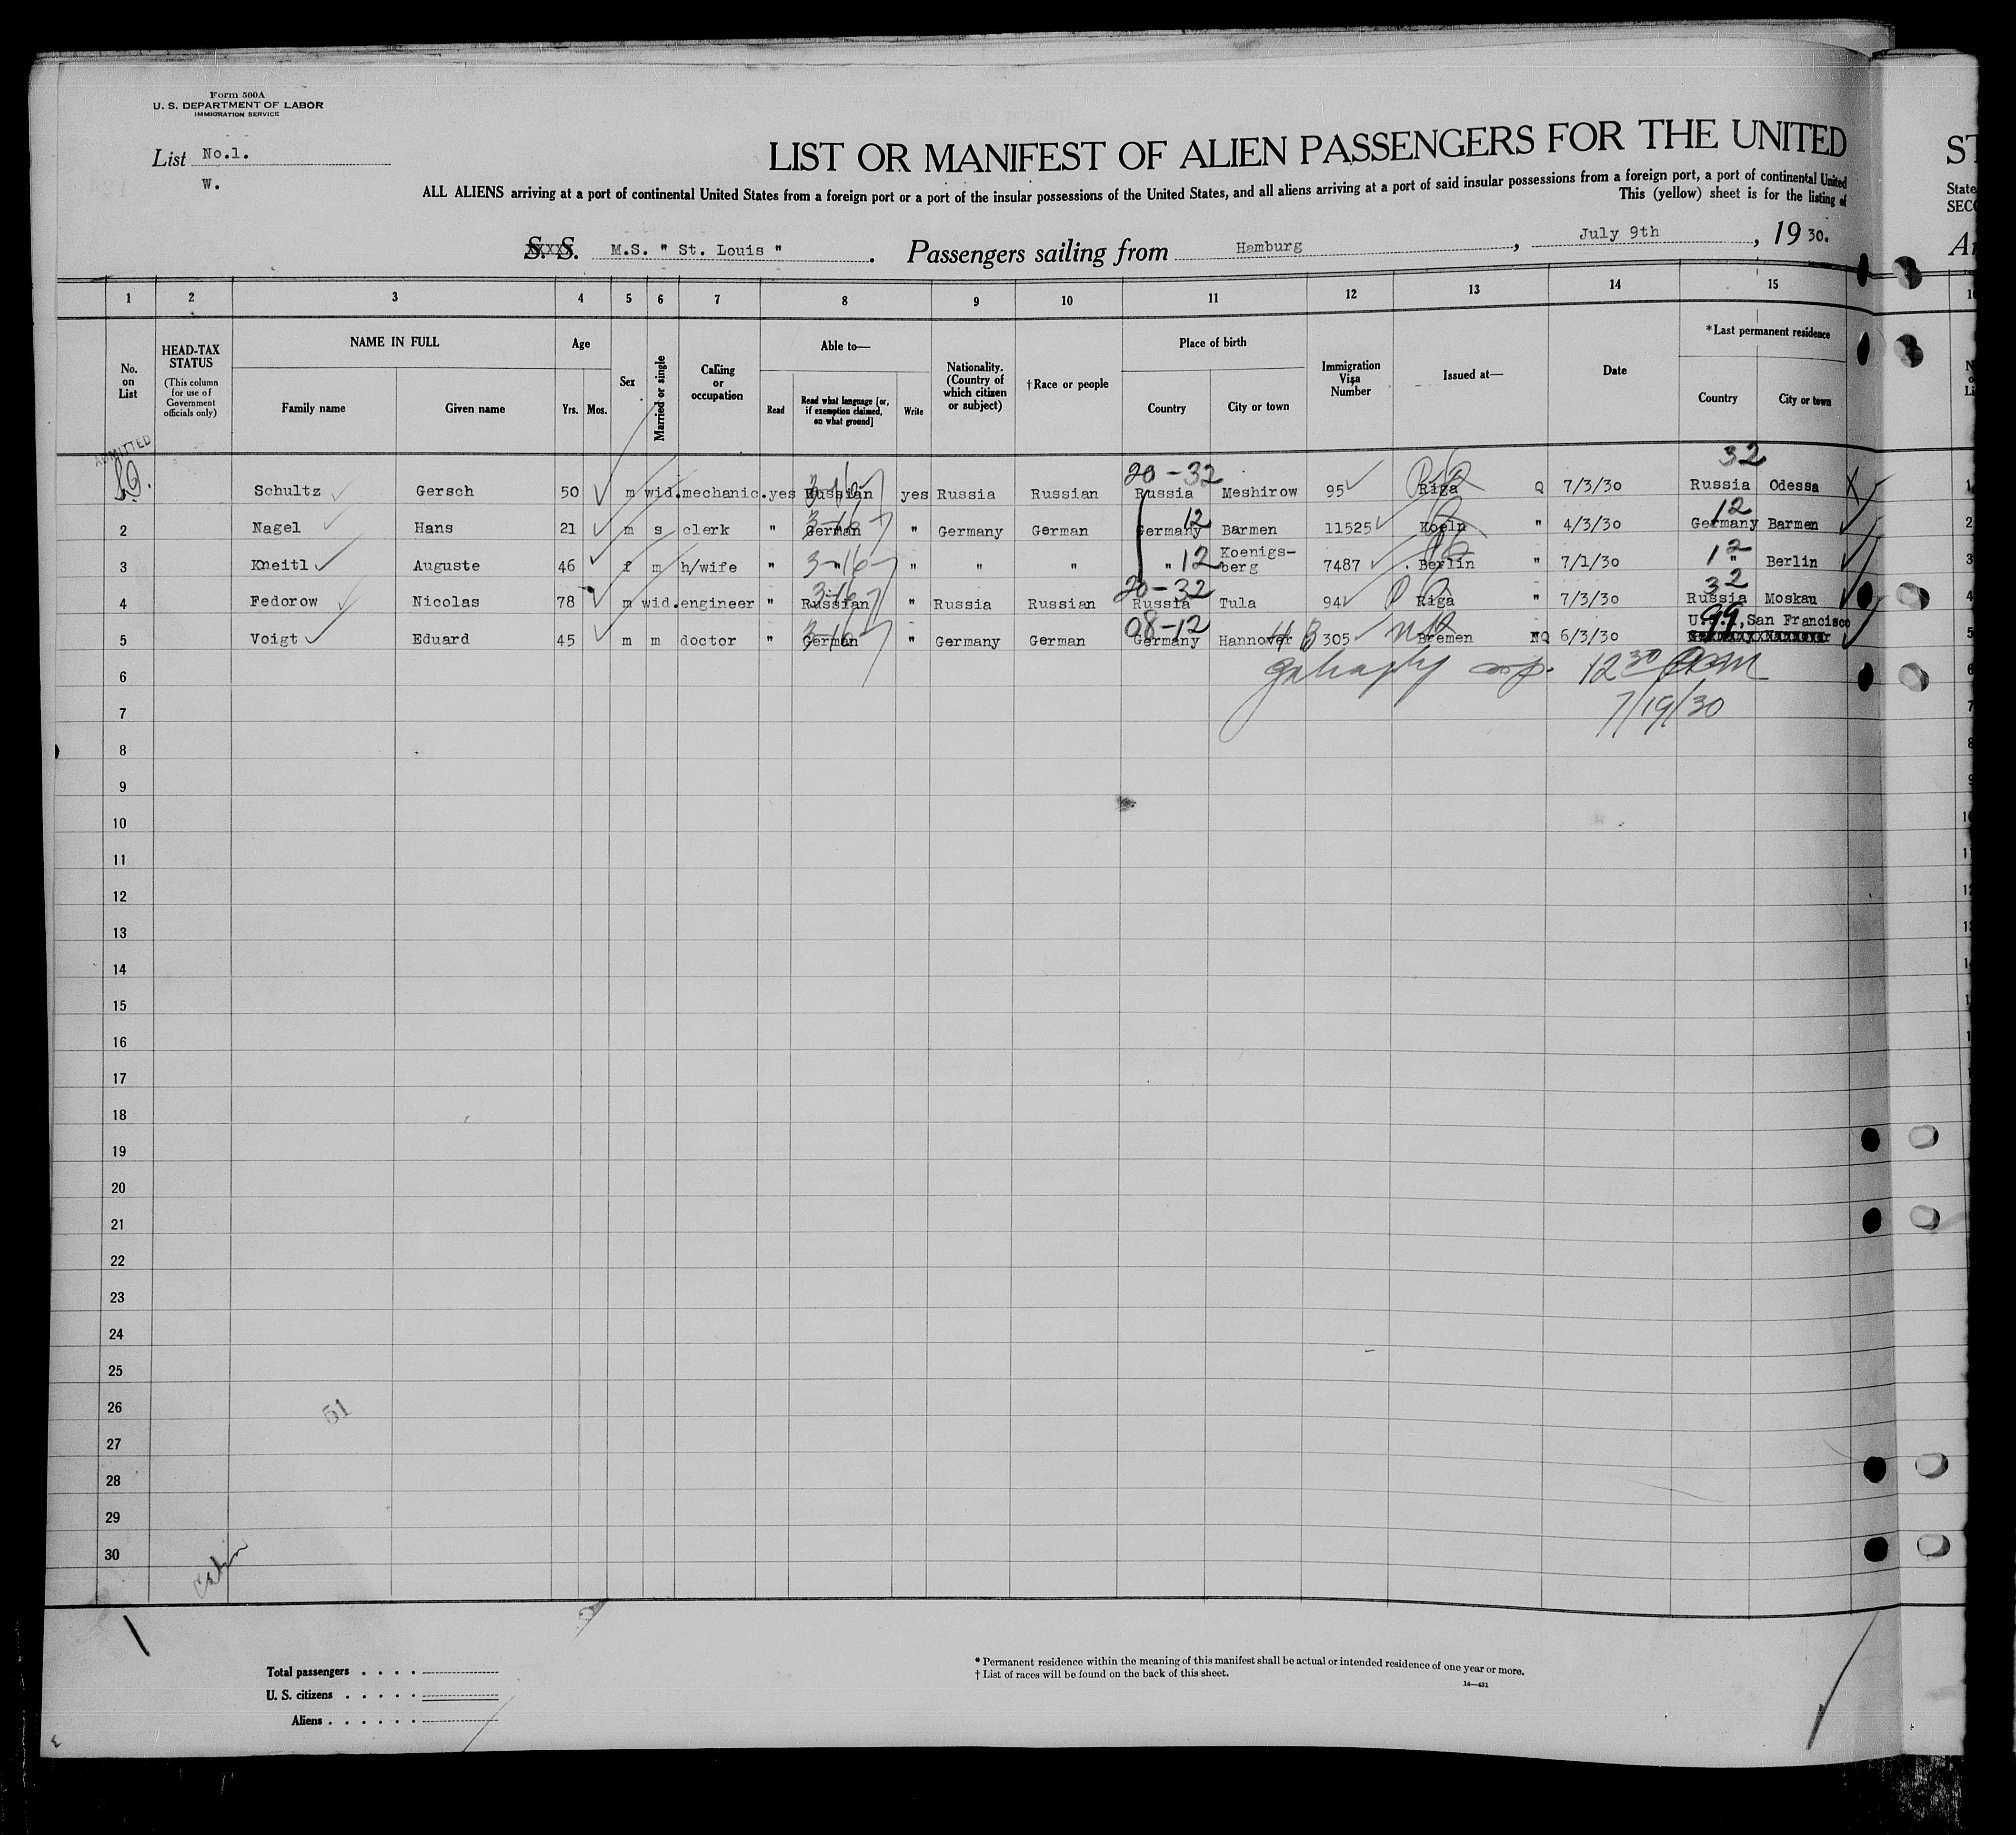 Form 500A
U. S. DEPARTMENT OF LABOR
IMMIGRATION SERVICE
List No.1.
W.
LIST OR MANIFEST OF ALIEN PASSENGERS FOR THE UNITED
ALL ALIENS arriving at a port of continental United States from a foreign port or a port of the insular possessions of the United States, and all aliens arriving at a port of said insular possessions from a foreign port, a port of continental United
This (yellow) sheet is for the listing of
S. S. M.S. " St. Louis ". Passengers sailing from Hamburg, July 9th, 1930.
1 2 3 4 5 6 7 8 9 10 11 12 13 14 15
No. on List
HEAD-TAX STATUS (This column for use of Government officials only)
NAME IN FULL Family name Given name
Age Yrs. Mos.
Sex
Married or single
Calling or occupation
Able to— Read Read what language [or, if exemption claimed, on what ground] Write
Nationality. (Country of which citizen or subject)
†Race or people
Place of birth Country City or town
Immigration Visa Number
Issued at—
Date
*Last permanent residence Country City or town
ADMITTED
20-32 32
Schultz Gersch 50 m wid. mechanic. yes Russian yes Russia Russian Russia Meshirow 95 Riga Q 7/3/30 Russia Odessa X
3-16 12 12
2 Nagel Hans 21 m s clerk " German " Germany German Germany Barmen 11525 Koeln " 4/3/30 Germany Barmen
3-16 12 12
3 Kneitl Auguste 46 f m h/wife " " " " " " Koenigs-berg 7487 Berlin " 7/1/30 " Berlin
3-16 20-32 32
4 Fedorow Nicolas 78 m wid. engineer " Russian " Russia Russian Russia Tula 94 Riga " 7/3/30 Russia Moskau
3-16 08-12 99
5 Voigt Eduard 45 m m doctor " German " Germany German Germany Hannover 305 Bremen NQ 6/3/30 U.S.A., San Francisco
Germany Hannover
6 12 30 7/19/30
7
8
9
10
11
12
13
14
15
16
17
18
19
20
21
22
23
24
25
26
51
27
28
29
30
Cabin
Total passengers
U. S. citizens
Aliens
* Permanent residence within the meaning of this manifest shall be actual or intended residence of one year or more.
† List of races will be found on the back of this sheet.
14—431